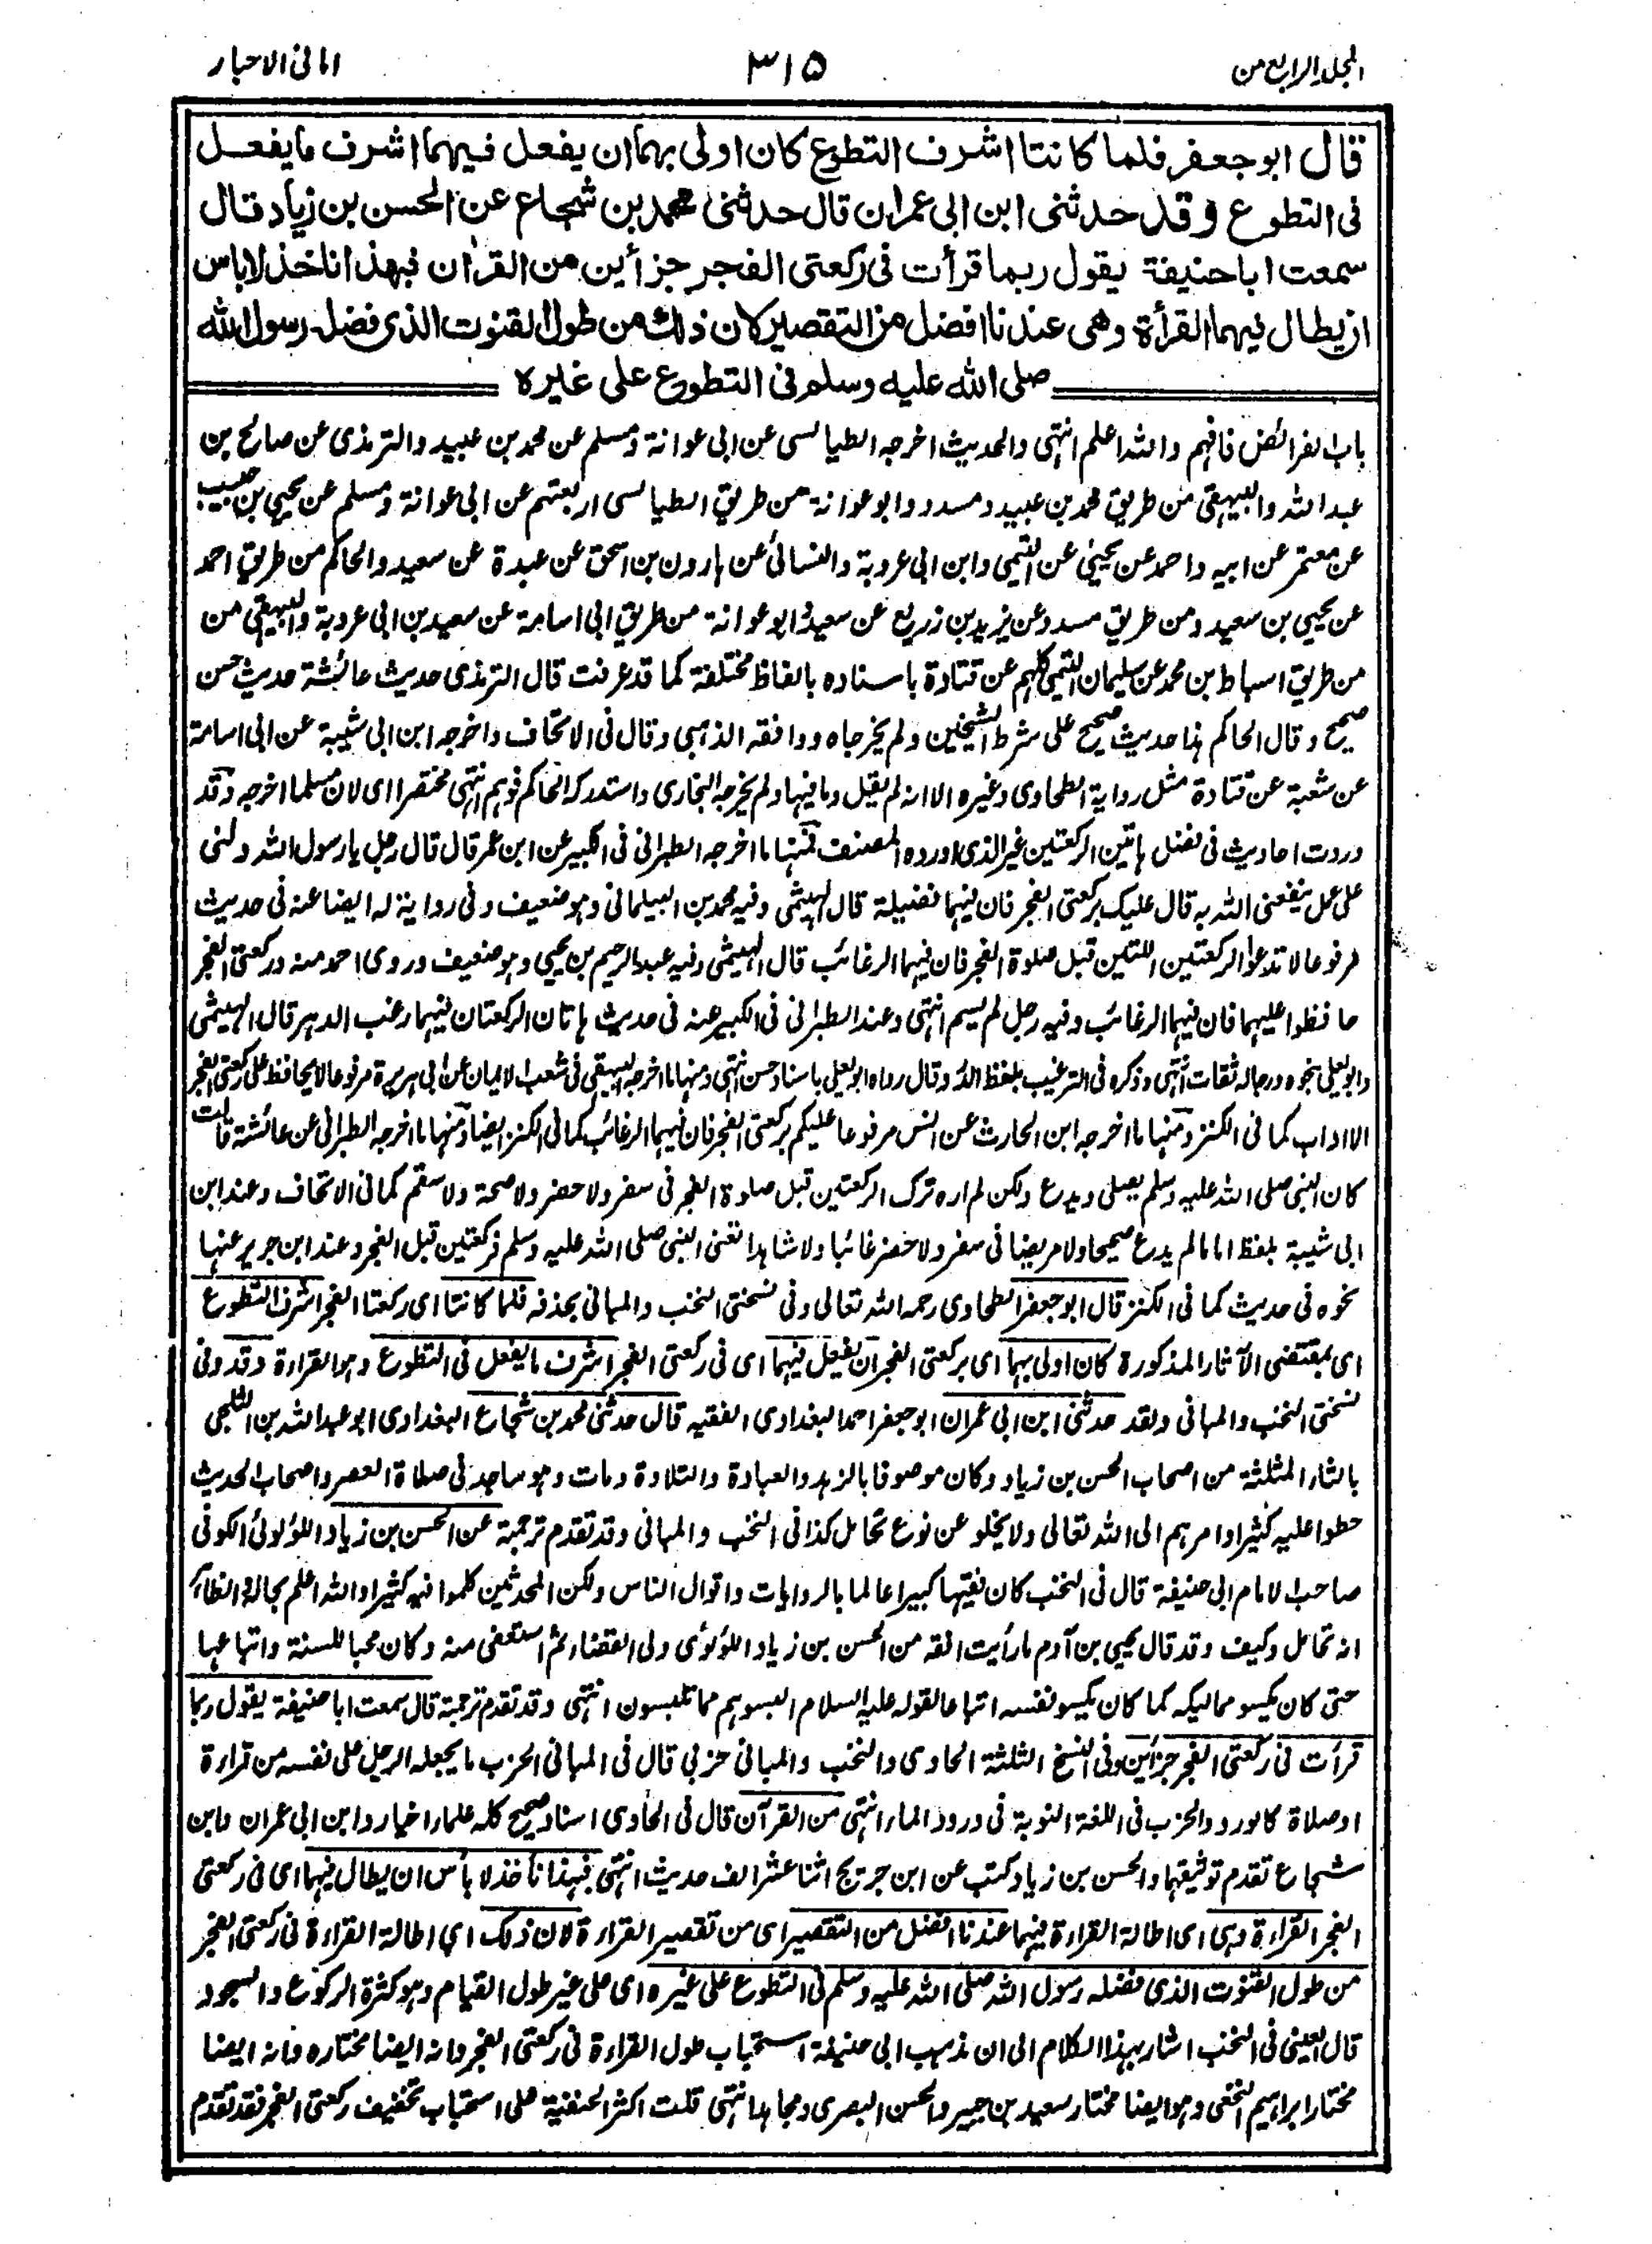 المجلد الرابع من
٣١٥
امانی الاحبار
قال ابوجعفر فلما كانتا اشرف التطوع كان اولى بهما ان يفعل فيهما اشرف ما يفعل
فى التطوع وقد حدثنى ابن ابى عمران قال حدثنى محمد بن شجاع عن الحسن بن زياد قال
سمعت اباحنيفة يقول ربما قرأت فى ركعتى الفجر جزأين من القرأن فبهذا ناخذ لاباس
ان يطال فيهما القرأة وهى عندنا افضل من التقصير لان ذلك من طول القنوت الذى فضل رسول الله
صلى الله عليه وسلم فى التطوع على غيره
باب الفرائض فافهم والله اعلم انتهى والحديث اخرجه الطيالسى عن ابى عوانة ومسلم عن محمد بن عبيد والترمذى عن صالح بن
عبد الله والبيهقى من طريق محمد بن عبيد ومسدد وابو عوانة من طريق الطيالسى اربعتهم عن ابى عوانة ومسلم عن يحيى بن حبيب
عن معتمر عن ابيه واحمد عن يحيى عن التيمى وابن ابى عروبة والنسائى عن هارون بن اسحق عن عبدة عن سعيد والحاكم من طريق احمد
عن يحيى بن سعيد ومن طريق مسدد عن يزيد بن زريع عن سعيد وابو عوانة من طريق ابى اسامة عن سعيد بن ابى عروبة والبيهقى من
من طريق اسباط بن محمد عن سليمان التيمى كلهم عن قتادة باسناده بالفاظ مختلفة كما قد عرفت قال الترمذى حديث عائشة حديث حسن
صحيح وقال الحاكم هذا حديث صحيح على شرط الشيخين ولم يخرجاه ووافقه الذهبى وقال فى الاتحاف واخرجه ابن ابى شيبة عن ابى اسامة
عن شعبة عن قتادة مثل رواية الطحاوى وغيره الا انه لم يقل وما فيها ولم يخرجه البخارى واستدركه الحاكم فوهم انتهى مختصرا اى لان مسلما اخرجه وقد
وردت احاديث فى فضل هاتين الركعتين غير الذى اورده المصنف فمنها ما اخرجه الطبرانى فى الكبير عن ابن عمر قال قال رجل يا رسول الله دلنى
على عمل ينفعنى الله به قال عليك بركعتى الفجر فان فيهما فضيلة قال الهيثمى وفيه محمد بن البيلمانى وهو ضعيف وفى رواية له ايضا عنه فى حديث
مرفوعا لا تدعوا الركعتين اللتين قبل صلوة الفجر فان فيهما الرغائب قال الهيثمى وفيه عبد الرحيم بن يحيى وهو ضعيف وروى احمد منه وركعتى الفجر
حافظوا عليهما فان فيهما الرغائب وفيه رجل لم يسم انتهى وعند الطبرانى فى الكبير عنه فى حديث هاتان الركعتان فيهما رغب الدهر قال الهيثمى
وابو يعلى بنحوه ورجاله ثقات انتهى وذكره فى الترغيب بلفظ الدر وقال رواه ابو يعلى باسناد حسن انتهى ومنها ما اخرجه البيهقى فى شعب الايمان عن ابى هريرة مرفوعا لا يحافظ على ركعتى الفجر
الا اواب كما فى الكنز ومنها ما اخرجه ابن الحارث عن انس مرفوعا عليكم بركعتى الفجر فان فيهما الرغائب كما فى الكنز ايضا ومنها ما اخرجه الطبرانى عن عائشة قالت
كان النبى صلى الله عليه وسلم يصلى ويدع ولكن لم اره ترك الركعتين قبل صلوة الفجر فى سفر ولا حضر ولا صحة ولا سقم كما فى الاتحاف وعند ابن
ابى شيبة بلفظ اما ما لم يدع صحيحا ولا مريضا فى سفر ولا حضر غائبا ولا شاهدا تعنى النبى صلى الله عليه وسلم فركعتين قبل الفجر وعند ابن جرير عنها
نحوه فى حديث كما فى الكنز قال ابو جعفر الطحاوى رحمه الله تعالى وفى نسختى النخب والمبانى بحذفه فلما كانتا اى ركعتا الفجر اشرف التطوع
اى بمقتضى الآثار المذكورة كان اولى بهما اى بركعتى الفجر ان يفعل فيهما اى فى ركعتى الفجر اشرف ما يفعل فى التطوع وهو القراءة وقد وفى
نسختى النخب والمبانى ولقد حدثنى ابن ابى عمران ابو جعفر احمد البغدادى الفقيه قال حدثنى محمد بن شجاع البغدادى ابو عبد الله بن الثلجى
بالثاء المثلثة من اصحاب الحسن بن زياد وكان موصوفا بالزهد والعبادة والتلاوة ومات وهو ساجد فى صلاة العصر واصحاب الحديث
حطوا عليه كثيرا وامرهم الى الله تعالى ولا يخلو عن نوع تحامل كذا فى النخب والمبانى وقد تقدم ترجمته عن الحسن بن زياد اللؤلوئ الكوفى
صاحب الامام ابى حنيفة قال فى النخب كان فقيها كبيرا عالما بالروايات واقوال الناس ولكن المحدثين كلموا فيه كثيرا والله اعلم بحاله والظاهر
انه تحامل وكيف وقد قال يحيى بن آدم ما رأيت افقه من الحسن بن زياد اللؤلوئى ولى القضاء ثم استعفى منه وكان محبا للسنة واتباعها
حتى كان يكسو مماليكه كما كان يكسو نفسه اتباعا لقوله عليه السلام البسوهم مما تلبسون انتهى وقد تقدم ترجمته قال سمعت ابا حنيفة يقول ربما
قرأت فى ركعتى الفجر جزأين وفى النسخ الثلثة الحاوى والنخب والمبانى حزبى قال فى المبانى الحزب ما يجعله الرجل على نفسه من قراءة
او صلاة كالورد والحزب فى اللغة النوبة فى ورود الماء انتهى من القرآن قال فى الحاوى اسناد صحيح كله علماء اخيار وابن ابى عمران وابن
شجاع تقدم توثيقهما والحسن بن زياد كتب عن ابن جريج اثنا عشر الف حديث انتهى فبهذا ناخذ لا بأس ان يطال فيهما اى فى ركعتى
الفجر القراءة وهى اى اطالة القراءة فيهما عندنا افضل من التقصير اى من تقصير القراءة لان ذلك اى اطالة القراءة فى ركعتى الفجر
من طول القنوت الذى فضله رسول الله صلى الله عليه وسلم فى التطوع على غيره اى على غير طول القيام وهو كثرة الركوع والسجود
قال العينى فى النخب اشار بهذا الكلام الى ان مذهب ابى حنيفة استحباب طول القراءة فى ركعتى الفجر وانه ايضا مختاره وانه ايضا
مختار ابراهيم النخعى وهو ايضا مختار سعيد بن جبير والحسن البصرى ومجاهد انتهى قلت اكثر الحنفية على استحباب تخفيف ركعتى الفجر فقد تقدم